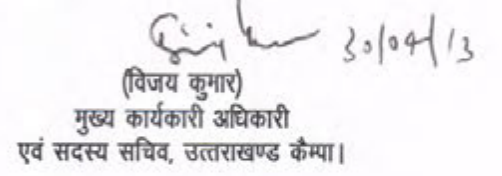 30/04/13
(विजय कुमार)
मुख्य कार्यकारी अधिकारी
एवं सदस्य सचिव, उत्तराखण्ड कैम्पा।